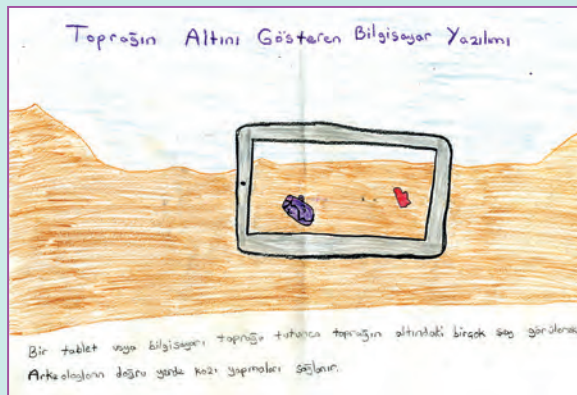 Toprağın Altını Gösteren Bilgisayar Yazılımı
Bir tablet veya bilgisayarı toprağa tutunca toprağın altındaki birçok şey görülerek
Arkeologların doğru yerde kazı yapmaları sağlanır.